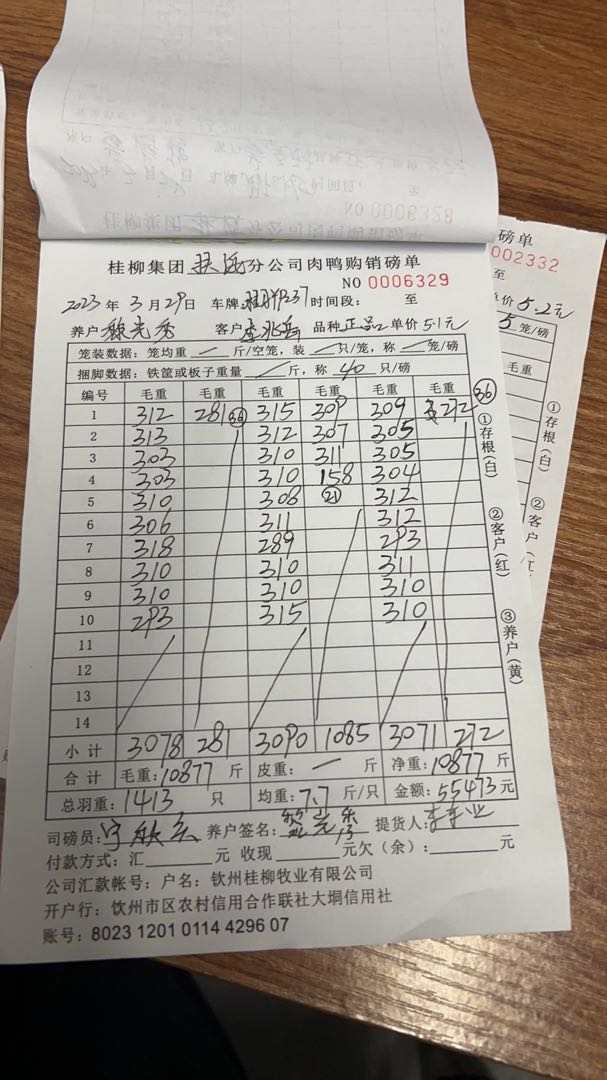 NO 0006328
磅单
002332
至
单价 5.2元
5 笼/磅
毛重
①存根(白)
②客户(红
桂柳集团 扶绥 分公司肉鸭购销磅单
NO 0006329
2023 年 3 月 29 日 车牌 时间段: 至
养户 客户 品种 正品2 单价 5.1元
笼装数据:笼均重 — 斤/空笼,装 — 只/笼,称 — 笼/磅
捆脚数据:铁筐或板子重量 — 斤,称 40 只/磅
编号 毛重 毛重 毛重 毛重 毛重 毛重 36
1 312 281 36 315 309 309 272
2 313 312 307 305
3 303 310 311 305
4 303 310 158 304
5 310 308 21 312
6 306 311 312
7 318 289 293
8 310 310 311
9 310 310 310
10 293 315 310
11
12
13
14
小计 3078 281 3090 1085 3071 272
合计 毛重:10877 斤 皮重: — 斤 净重:10877 斤
总羽重:1413 只 均重:7.7 斤/只 金额:55473 元
①存根(白)
②客户(红)
③养户(黄)
司磅员: 养户签名: 提货人:
付款方式:汇 元 收现 元欠(余): 元
公司汇款帐号:户名:钦州桂柳牧业有限公司
开户行:钦州市区农村信用合作联社大垌信用社
账号:8023 1201 0114 4296 07